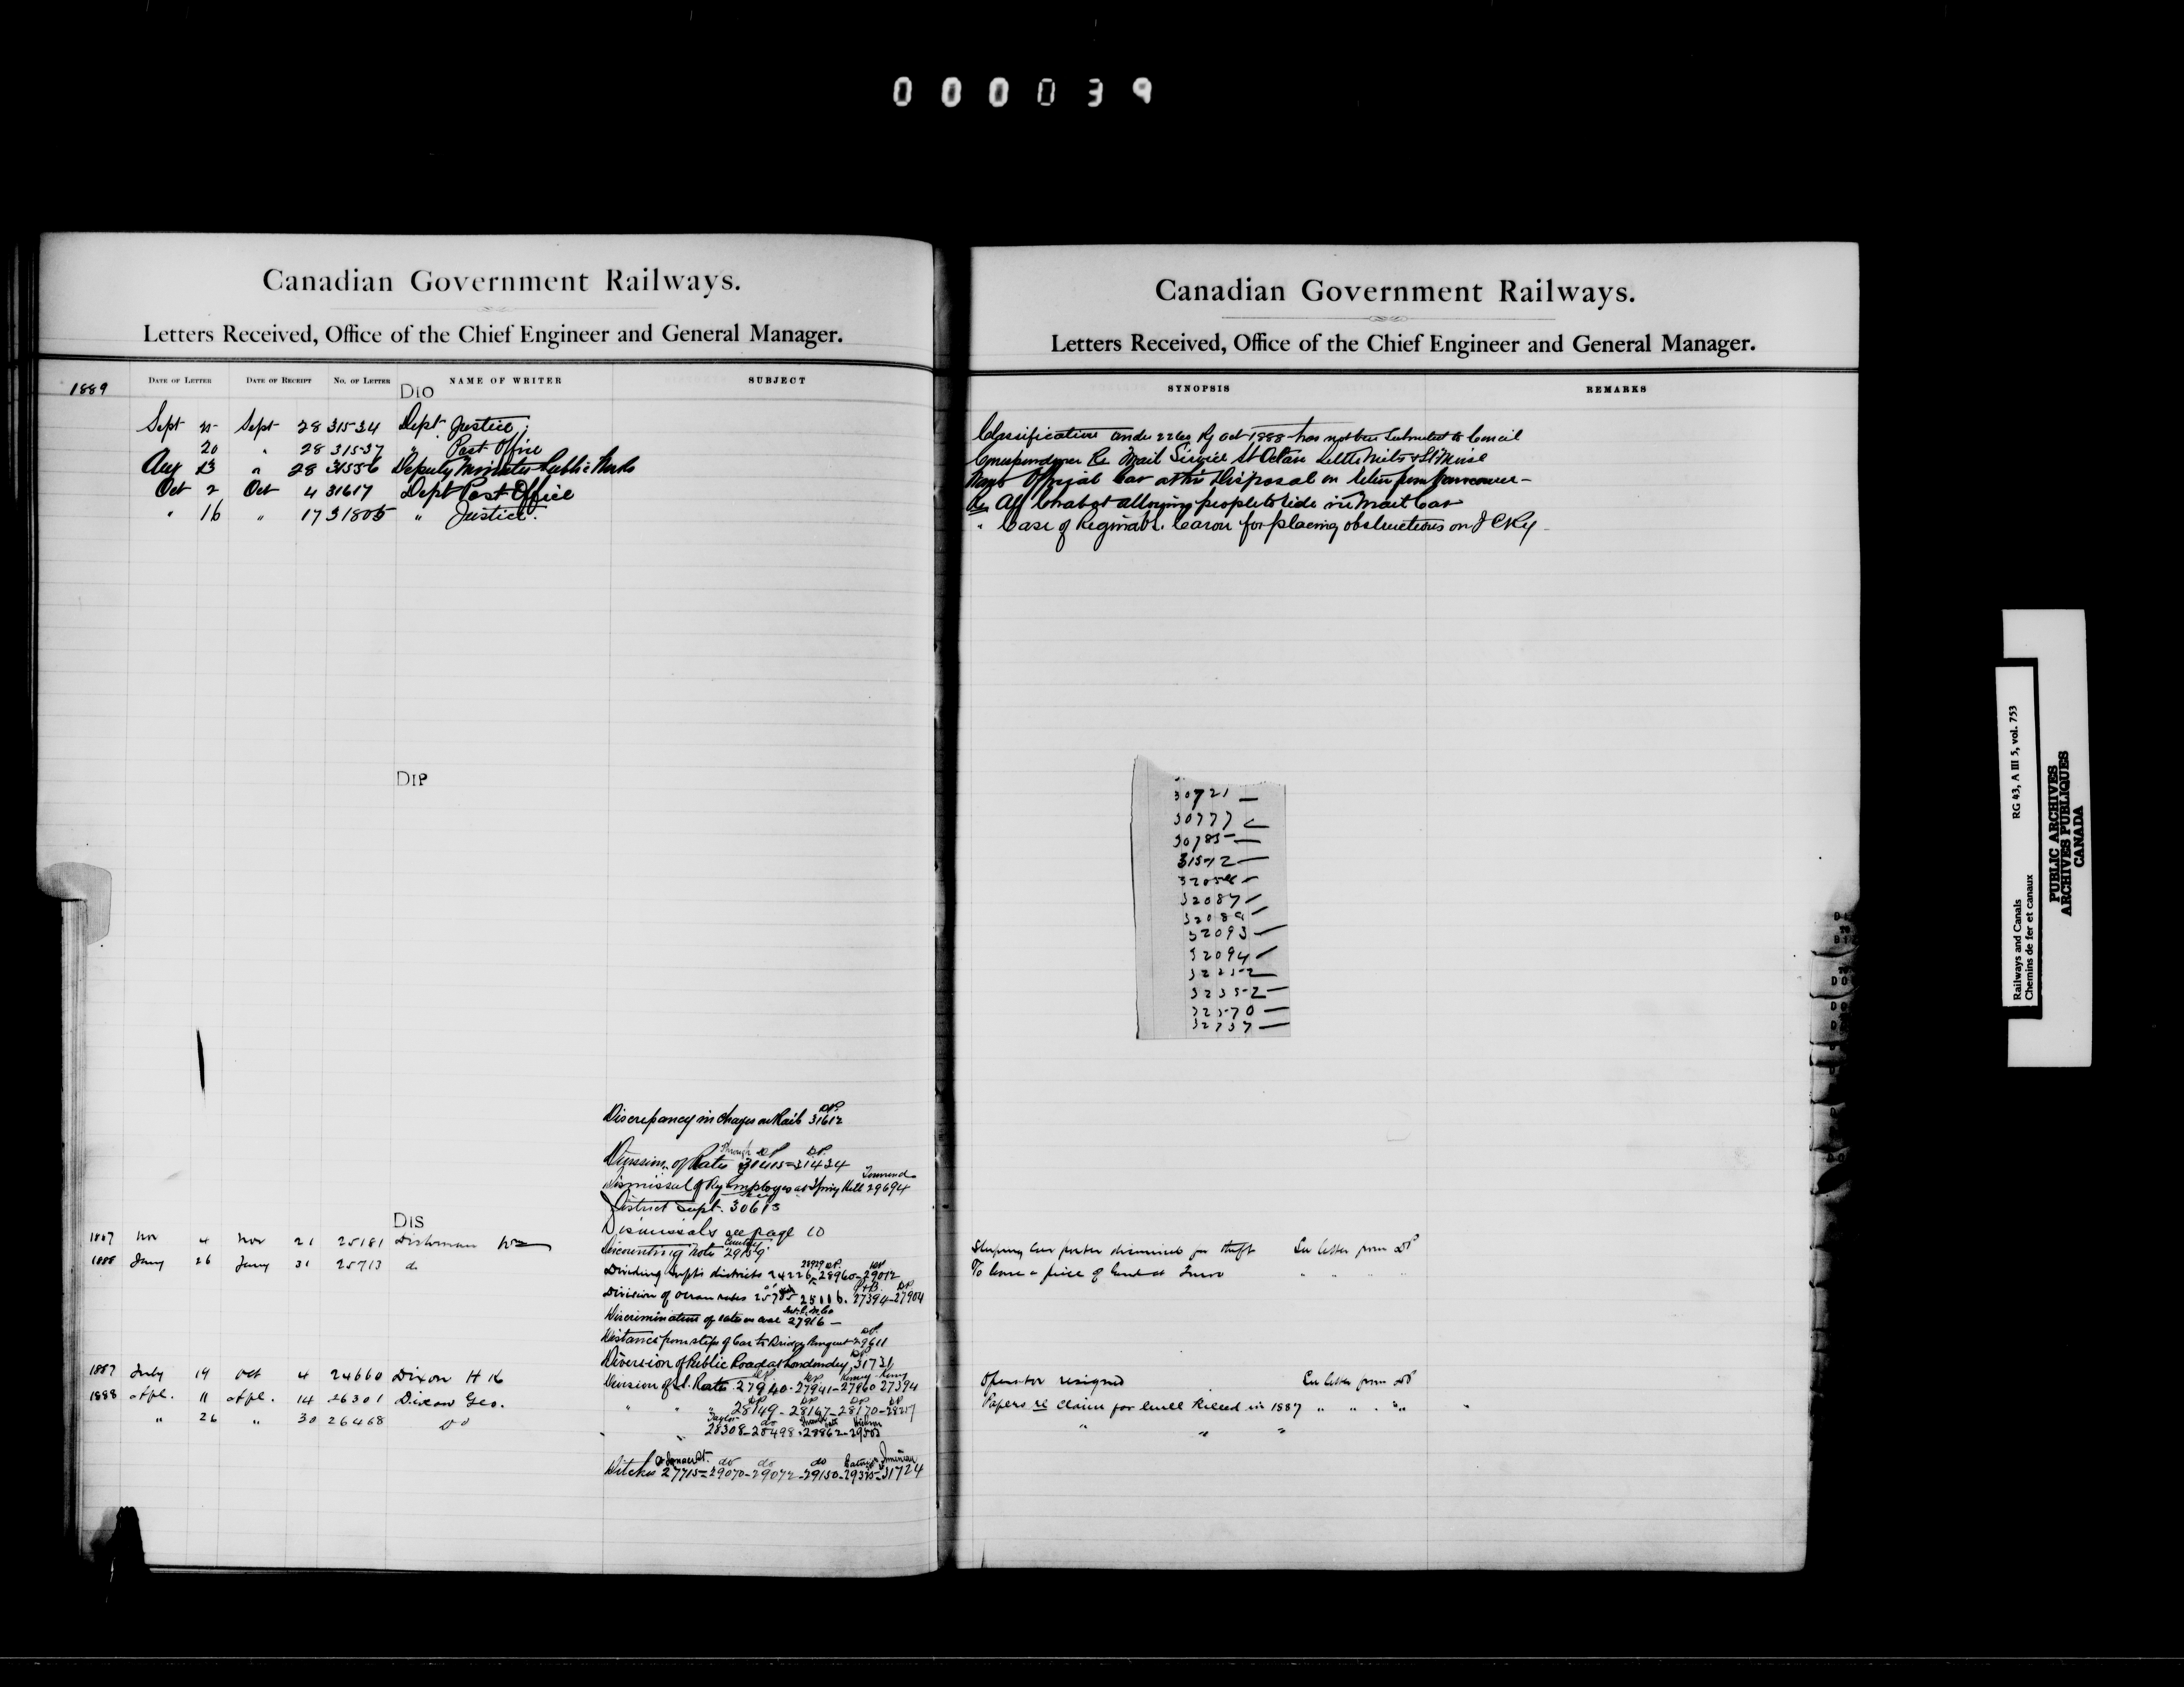 000039
Canadian Government Railways.
Letters Received, Office of the Chief Engineer and General Manager.
1889 DATE OF LETTER DATE OF RECEIPT No. OF LETTER NAME OF WRITER SUBJECT
DIO
Sept Sept 28 31534 Dept Justice
20 " 28 31537 " Post Office
Aug 23 " 28 31556 Deputy Minister Public Works
Oct 2 Oct 4 31617 Dept Post Office
" 16 " 17 31805 " Justice.
DIP
Discrepancy in charges on Rails 31612 DP
Division of Rates through DP 31415=31434 DP
Dismissal of Ry Employes at Spring Hill 29694
District Supt. 30613
DIS
Dismissals see page 10
1887 Nov 4 Nov 21 25181 Dishman
Discounting note 29159
1888 Jany 26 Jany 31 25713 do
Dividing Supts districts 24226-28960-29012
Division of Ocean rates 25785 25116. 27394-27904
Discrimination of rates on coal 27916 -
Distance from steps of Car to Bridge 29611
Diversion of Public Road at Londonderry 31731
1887 July 19 Oct 4 24660 Dixon H K
Division of Rates 27940-27941-27960 27394
1888 Apl. 11 Apl. 14 26301 Dixon Geo.
" " 28149-28167-28170-28257
" 26 " 30 26468 Do
" " 28308-28498-28862-29503
Ditches 27715=29070-29072-29150-29375-31724
Canadian Government Railways.
Letters Received, Office of the Chief Engineer and General Manager.
SYNOPSIS REMARKS
Classification under Ry act 1888 has not been submitted to Council
Correspondence Re Mail Service St Octave Little Metis & St Moise
Wants Official Car at his Disposal on return from Vancouver -
Re Alf Chabot allowing people to ride in Mail Car
" Case of Caron for placing obstructions on I C Ry -
30721 —
30777
30785 —
31572 —
32058 —
32087 —
32089 —
32093 —
32094 —
32252 —
32352 —
32570 —
32737 —
Sleeping Car porter dismissed for theft See letter from DP
To lease a piece of land at Truro " " "
Operator resigned See letter from DP
Papers re claim for bull killed in 1887 " " " "
" " "
Railways and Canals RG 43, A III 5, vol. 753
Chemins de fer et canaux
PUBLIC ARCHIVES
ARCHIVES PUBLIQUES
CANADA